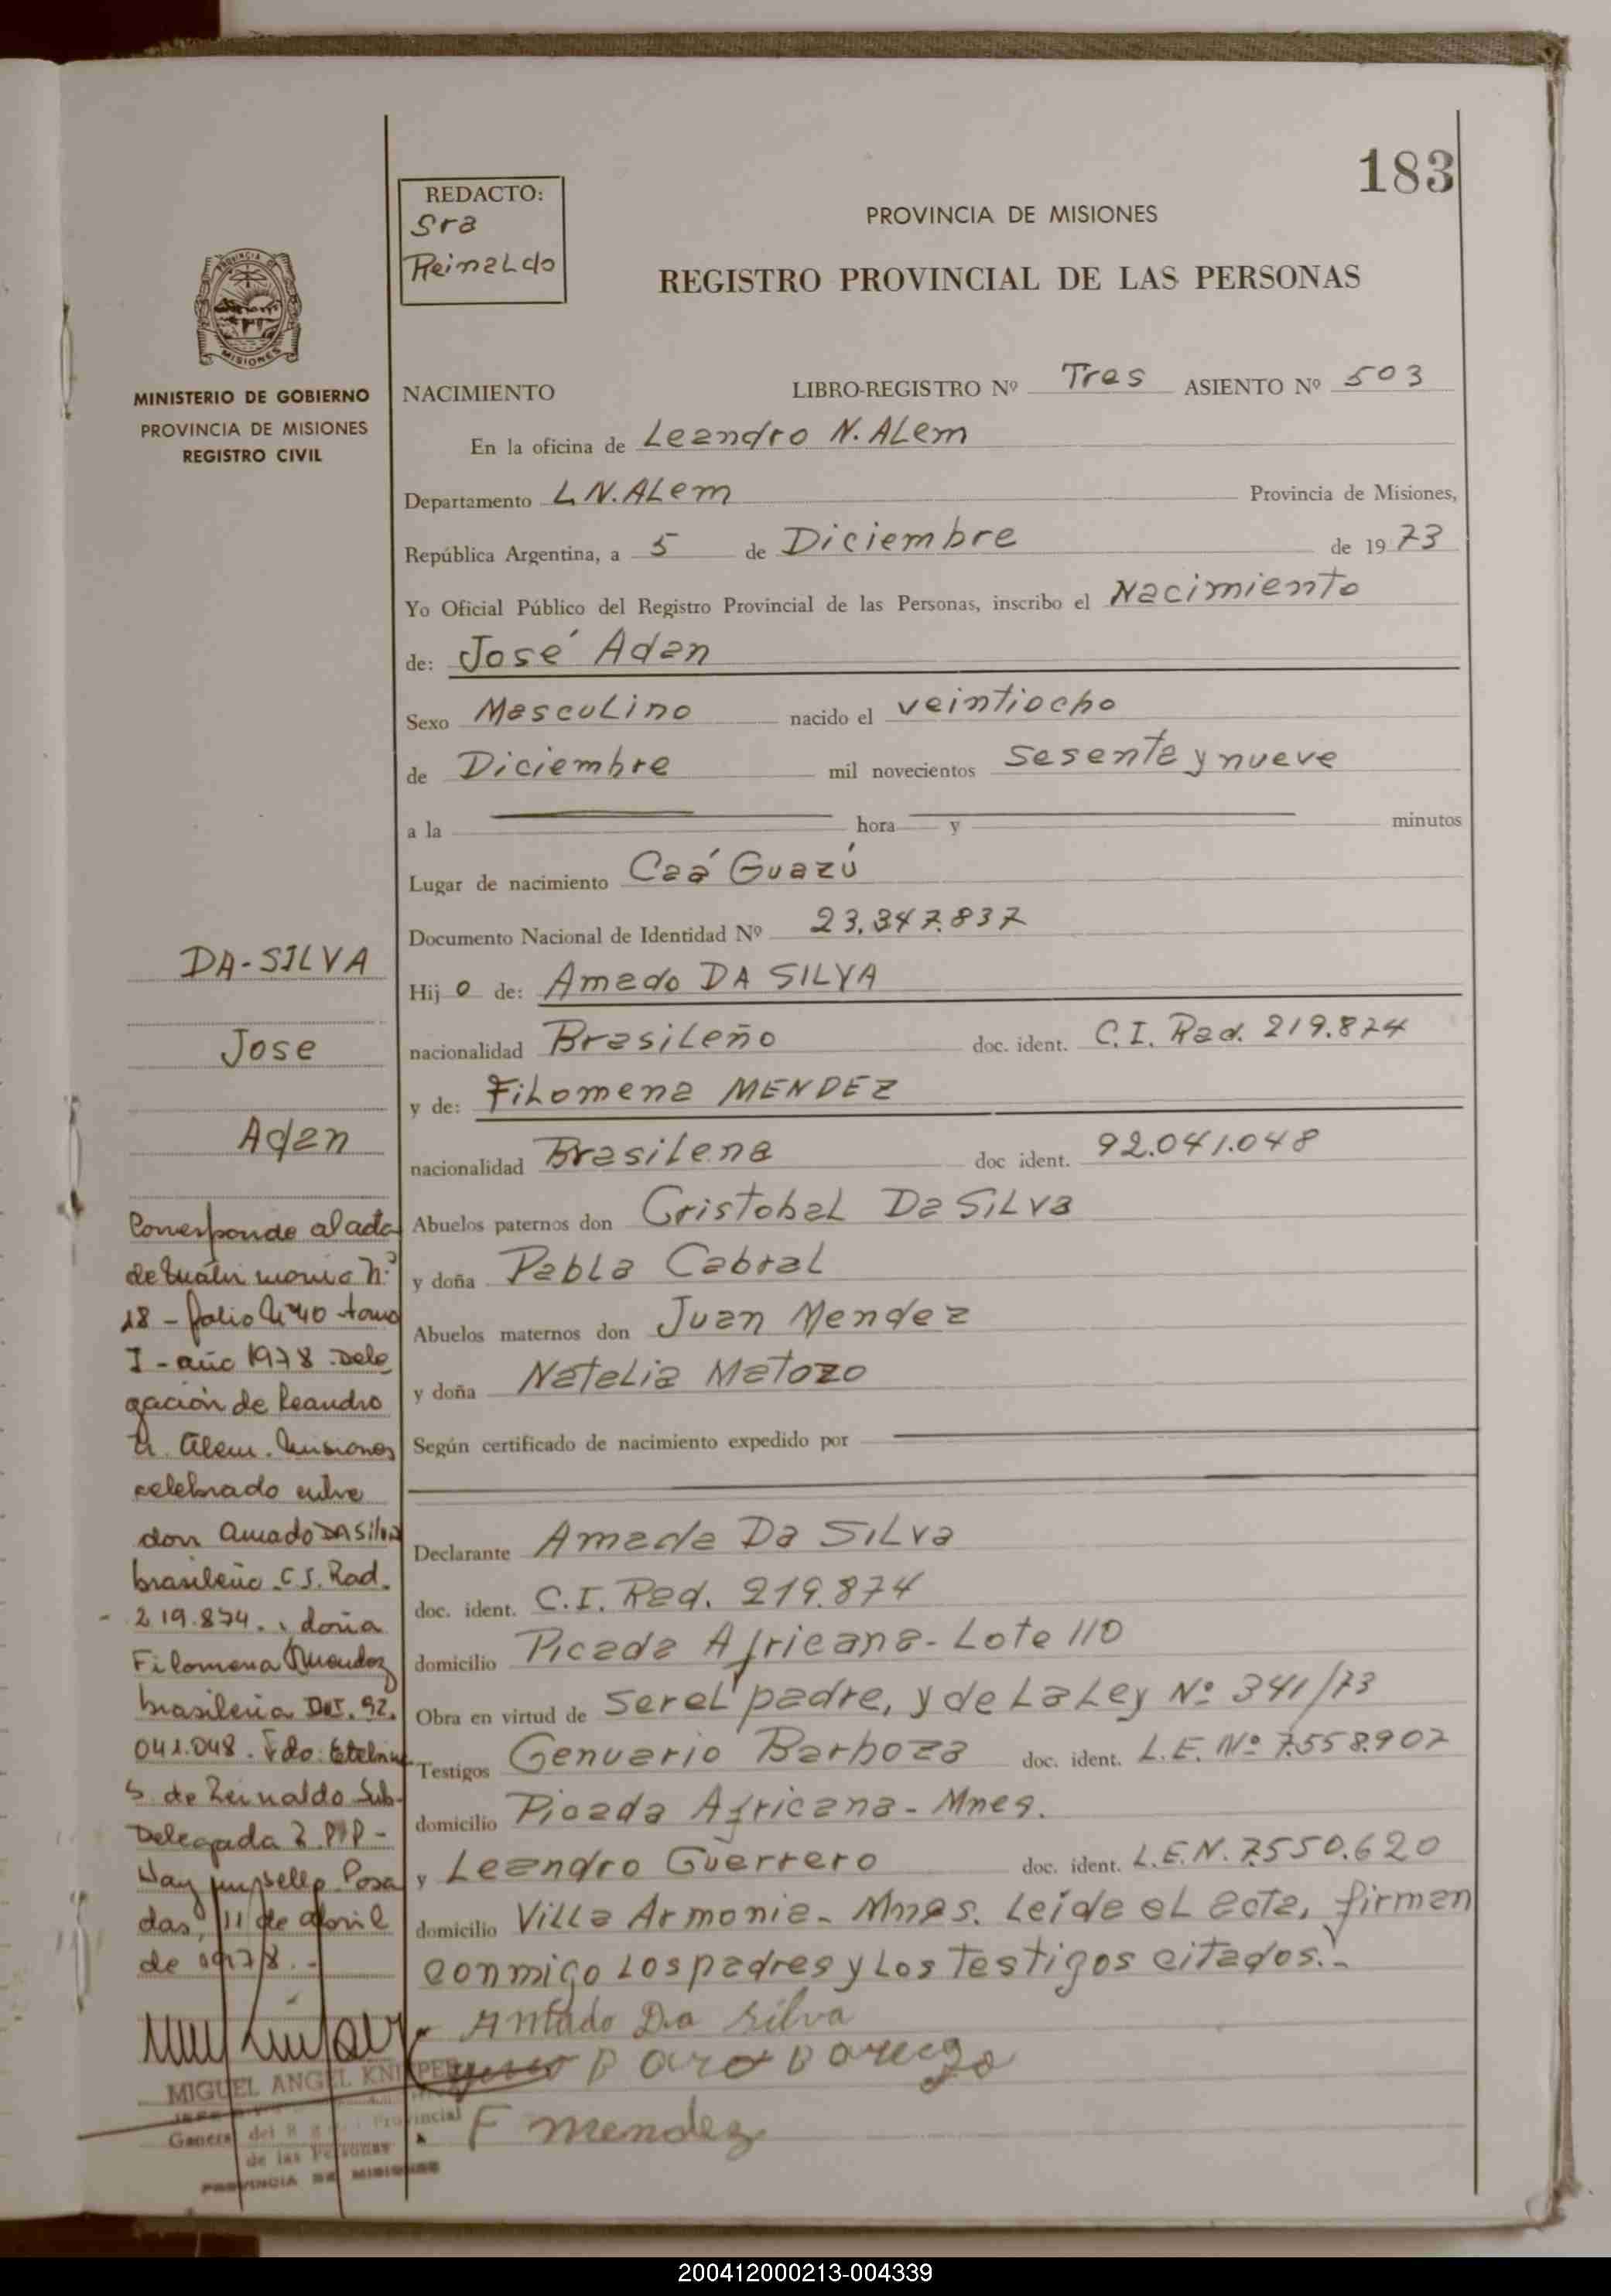 183
REDACTO:
Sra
Reinaldo
PROVINCIA DE MISIONES
REGISTRO PROVINCIAL DE LAS PERSONAS
PROVINCIA DE
MISIONES
MINISTERIO DE GOBIERNO
PROVINCIA DE MISIONES
REGISTRO CIVIL
NACIMIENTO LIBRO-REGISTRO Nº Tres ASIENTO Nº 503
En la oficina de Leandro N. ALem
Departamento L N. ALem Provincia de Misiones,
República Argentina, a 5 de Diciembre de 1973
Yo Oficial Público del Registro Provincial de las Personas, inscribo el Nacimiento
de: José Adan
Sexo MascuLino nacido el veintiocho
de Diciembre mil novecientos Sesenta y nueve
a la hora y minutos
Lugar de nacimiento Caá Guazú
Documento Nacional de Identidad Nº 23.347.837
Hijo de: Amado DA SILVA
nacionalidad BrasiLeño doc. ident. C.I. Rad. 219.874
y de: FiLomena MENDEZ
nacionalidad Brasilena doc ident. 92.041.048
Abuelos paternos don CristobaL Da SiLva
y doña PabLa Cabral
Abuelos maternos don Juan Mendez
y doña NataLia Matozo
Según certificado de nacimiento expedido por
Declarante Amada Da SiLva
doc. ident. C.I. Rad. 219.874
domicilio Picada Africana - Lote 110
Obra en virtud de ser eL padre, y de La Ley Nº 341/73
Testigos Genuario Barboza doc. ident. L.E. Nº 7.558.902
domicilio Picada Africana - Mnes.
y Leandro Guerrero doc. ident. L.E.N. 7.550.620
domicilio Villa Armonia - Mnes. Leída eL acta, firman
conmigo Los padres y Los Testigos citados.-
Amado Da Silva
F mendez
DA-SILVA
Jose
Adan
Corresponde al acta
de matrimonio Nº
18 - folio Nº 40 - tomo
I - año 1978 - Dele
gación de Leandro
N. Alem. Misiones
celebrado entre
don Amado DA Silva
brasileño C.I. Rad.
219.874. y doña
Filomena Mendez
brasileña DNI. 92.
041.048. Fdo: Etelvina
S. de Reinaldo Sub-
Delegada R.P.P -
Hay un sello. Posa
das, 11 de abril
de 1978. -
MIGUEL ANGEL
General del Provincial
de las Personas
PROVINCIA DE MISIONES
200412000213-004339